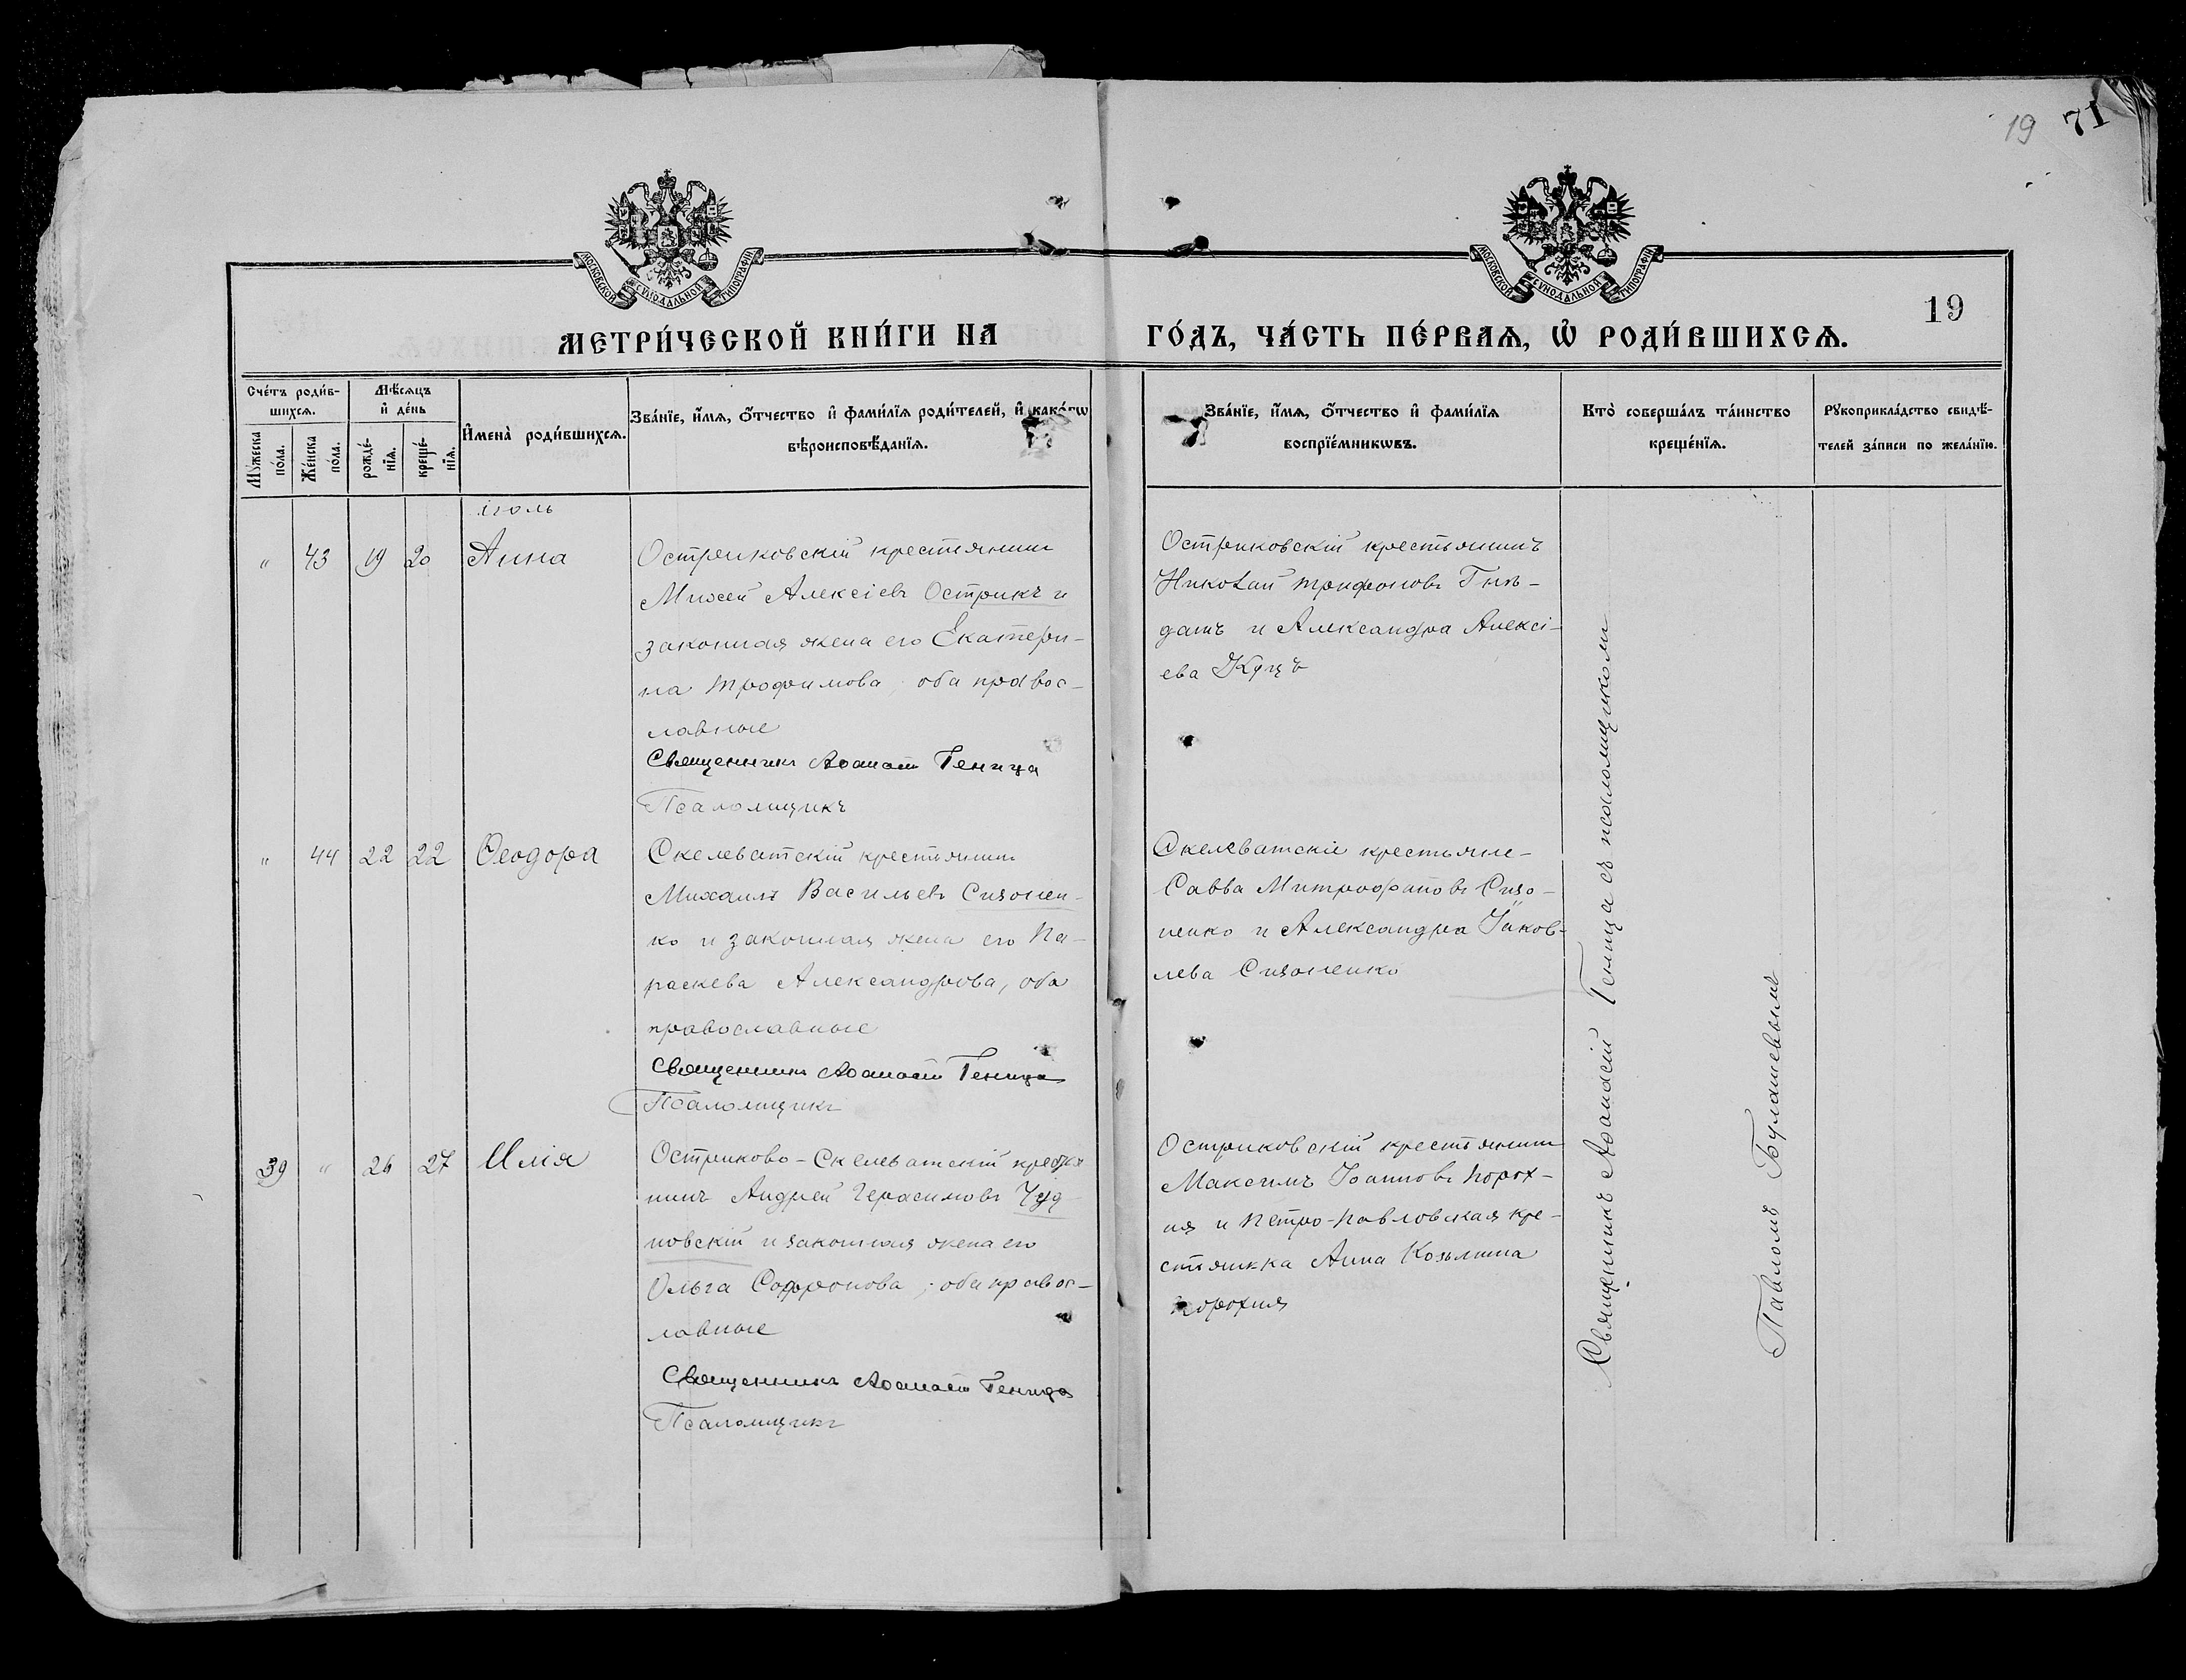 19 71
МОСКОВСКОЙ СѴНОДАЛЬНОЙ ТИПОГРАФІИ
МОСКОВСКОЙ СѴНОДАЛЬНОЙ ТИПОГРАФІИ
19
МЕТРИ́ЧЕСКОЙ КНИ́ГИ НА ГО́ДЪ, ЧА́СТЬ ПЕ́РВАѦ, Ѡ҆ РОДИ́ВШИХСѦ.
Сче́тъ роди́в-
шихсѧ.
Мꙋ́жеска
по́ла.
Же́нска
по́ла.
Мѣ́сѧцъ
и҆ де́нь
рожде́-
нїѧ.
креще́-
нїѧ.
И҆мена̀ роди́вшихсѧ.
Зва́нїе, и҆́мѧ, ѻ҆́тчество и҆ фами́лїѧ роди́телей, и҆ како́гѡ
вѣроисповѣ́данїѧ.
Зва́нїе, и҆́мѧ, ѻ҆́тчество и҆ фами́лїѧ
воспрїе́мникѡвъ.
Кто̀ соверша́лъ та́инство
креще́нїѧ.
Рꙋкоприкла́дство свидѣ́-
телей за́писи по жела́нїю.
іюль
" 43 19 20 Анна
Остриковскій крестьянинъ
Мисей Алексіевъ Острикъ и
законная жена его Екатери-
на Трофимова, оба правос-
лавные
Священникъ Аѳанасій Геница
Псаломщикъ
Остриковскій крестьянинъ
Николай Трифоновъ Гнѣ-
дашъ и Александра Алексі-
ева Куцъ
" 44 22 22 Ѳеодора
Скелеватскій крестьянинъ
Михаилъ Васильевъ Сизонен-
ко и законная жена его Па-
раскева Александрова, оба
православные
Священникъ Аѳанасій Геница
Псаломщикъ
Скелеватскіе крестьяне-
Савва Митрофановъ Сизо-
ненко и Александра Іаков-
лева Сизоненко
39 " 26 27 Илія
Остриково-Скелеватскій крестья
нинъ Андрей Герасимовъ Чуд
новскій и законная жена его
Ольга Софронова, оба правос-
лавные
Священникъ Аѳанасій Геница
Псаломщикъ
Остриковскій крестьянинъ
Максимъ Іоанновъ Порох-
ня и Петро-Павловская кре-
стьянка Анна Козьмина
Порохня
Священникъ Аѳанасій Геница съ псаломщикомъ
Павломъ Булашевымъ